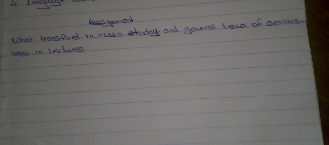 4. Language
Assignment
What transpired in class today and general level of serious-
ness in lectures